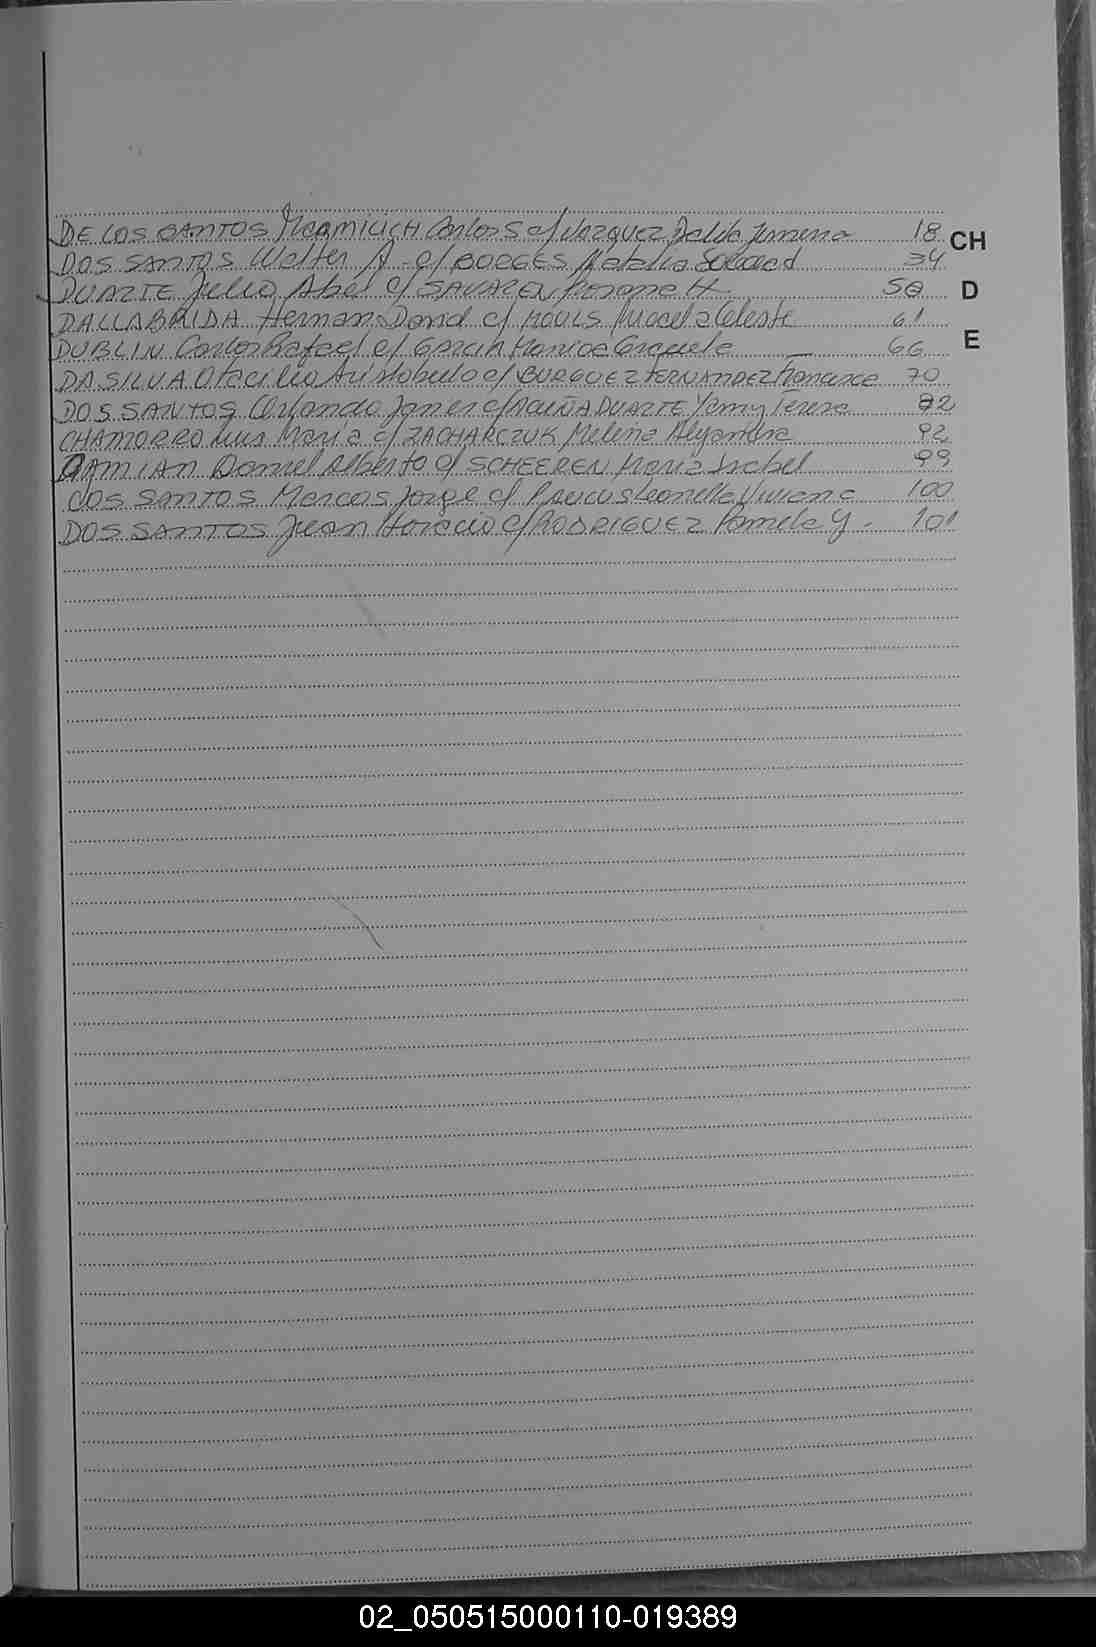 DE LOS SANTOS Carlos S c/ VAZQUEZ Dalva Jimena 18
CH
DOS SANTOS Walter A - c/ BORGES Natalia Soledad 34
DUARTE Julio Abel c/ 50
D
DALLABRIDA Hernan David c/ Celeste 61
DUBLIN Carlos Rafael c/ GARCIA Monica Graciela 66
E
DA SILVA Otacilio Aristobulo c/ BURGUEZ FERNANDEZ 70
DOS SANTOS Orlando Javier c/ ACUÑA DUARTE Yamy Teresa 82
CHAMORRO Luis Maria c/ ZACHARCZUK Melina Alejandra 92
DAMIAN Daniel Alberto c/ SCHEEREN Maria Isabel 99
DOS SANTOS Marcos Jorge c/ Viviana 100
DOS SANTOS Juan Horacio c/ RODRIGUEZ Pamela Y. 101
02_050515000110-019389